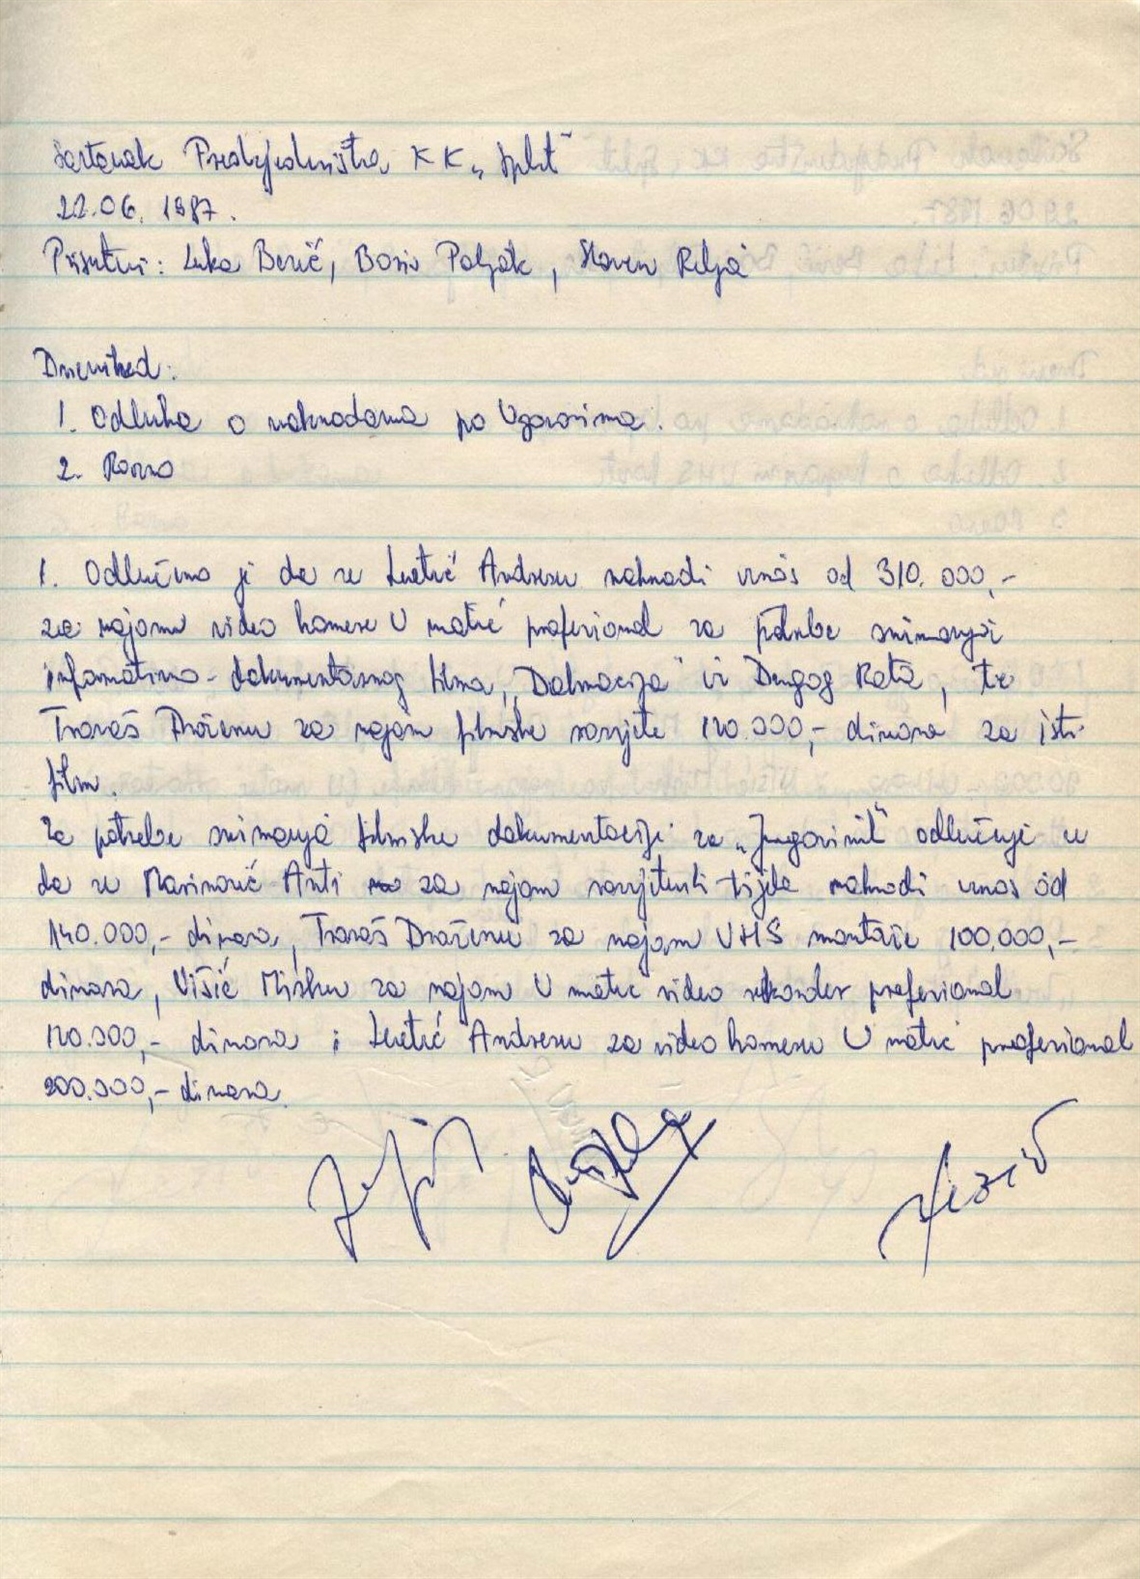 Sastanak Predsjedništva KK „Split"
22.06.1987.
Prisutni: Luka Bezić, Boris Poljak, Slaven Relja
Dnevni red:
1. Odluka o naknadama po Ugovorima.
2. Razno
1. Odlučeno je da se Luetić Andreju nahnadi iznos od 310.000,-
za najam video kamere U matic profesional za potrebe snimanja
informativno-dokumentarnog filma „Dalmacija" iz Drugog Rata, te
Travaš Draženu za najam filmske rasvjete 120.000,- dinara za isti
film.
Za potrebe snimanja filmske dokumentacije za „Jugovinil" odlučuje se
da se Marinović Anti za najam rasvjetnih tijela nahnadi iznos od
140.000,- dinara, Travaš Draženu za najam VHS montaže 100.000,-
dinara, Višić Mirku za najam U matic video rekorder profesional
120.000,- dinara i Luetić Andreju za video kameru U matic profesional
200.000,- dinara.